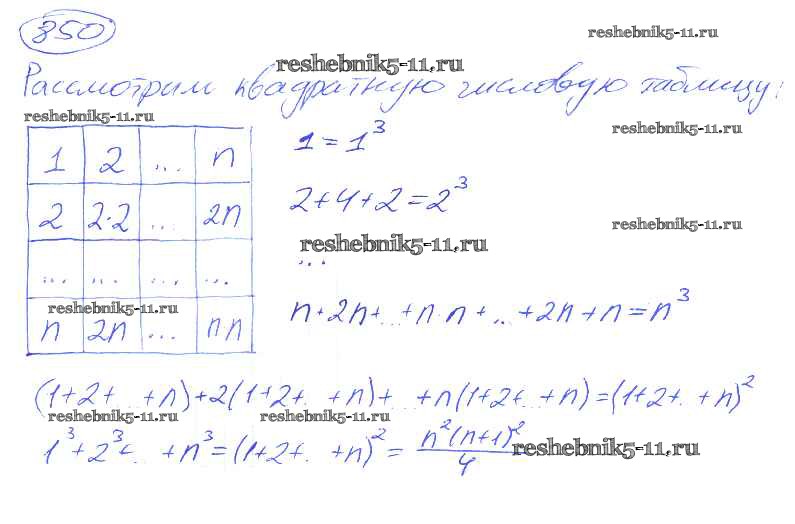 850
reshebnik5-11.ru
reshebnik5-11.ru
Рассмотрим квадратную числовую таблицу:
reshebnik5-11.ru
reshebnik5-11.ru
1 2 ... n
1 = 1³
2 2·2 ... 2n
2+4+2=2³
reshebnik5-11.ru
reshebnik5-11.ru
... ... ... ...
...
reshebnik5-11.ru
n 2n ... n n
n+2n+...+n·n+...+2n+n=n³
(1+2+...+n)+2(1+2+...+n)+...+n(1+2+...+n)=(1+2+...+n)²
reshebnik5-11.ru
reshebnik5-11.ru
1³+2³+...+n³=(1+2+...+n)²=n²(n+1)²/4
reshebnik5-11.ru